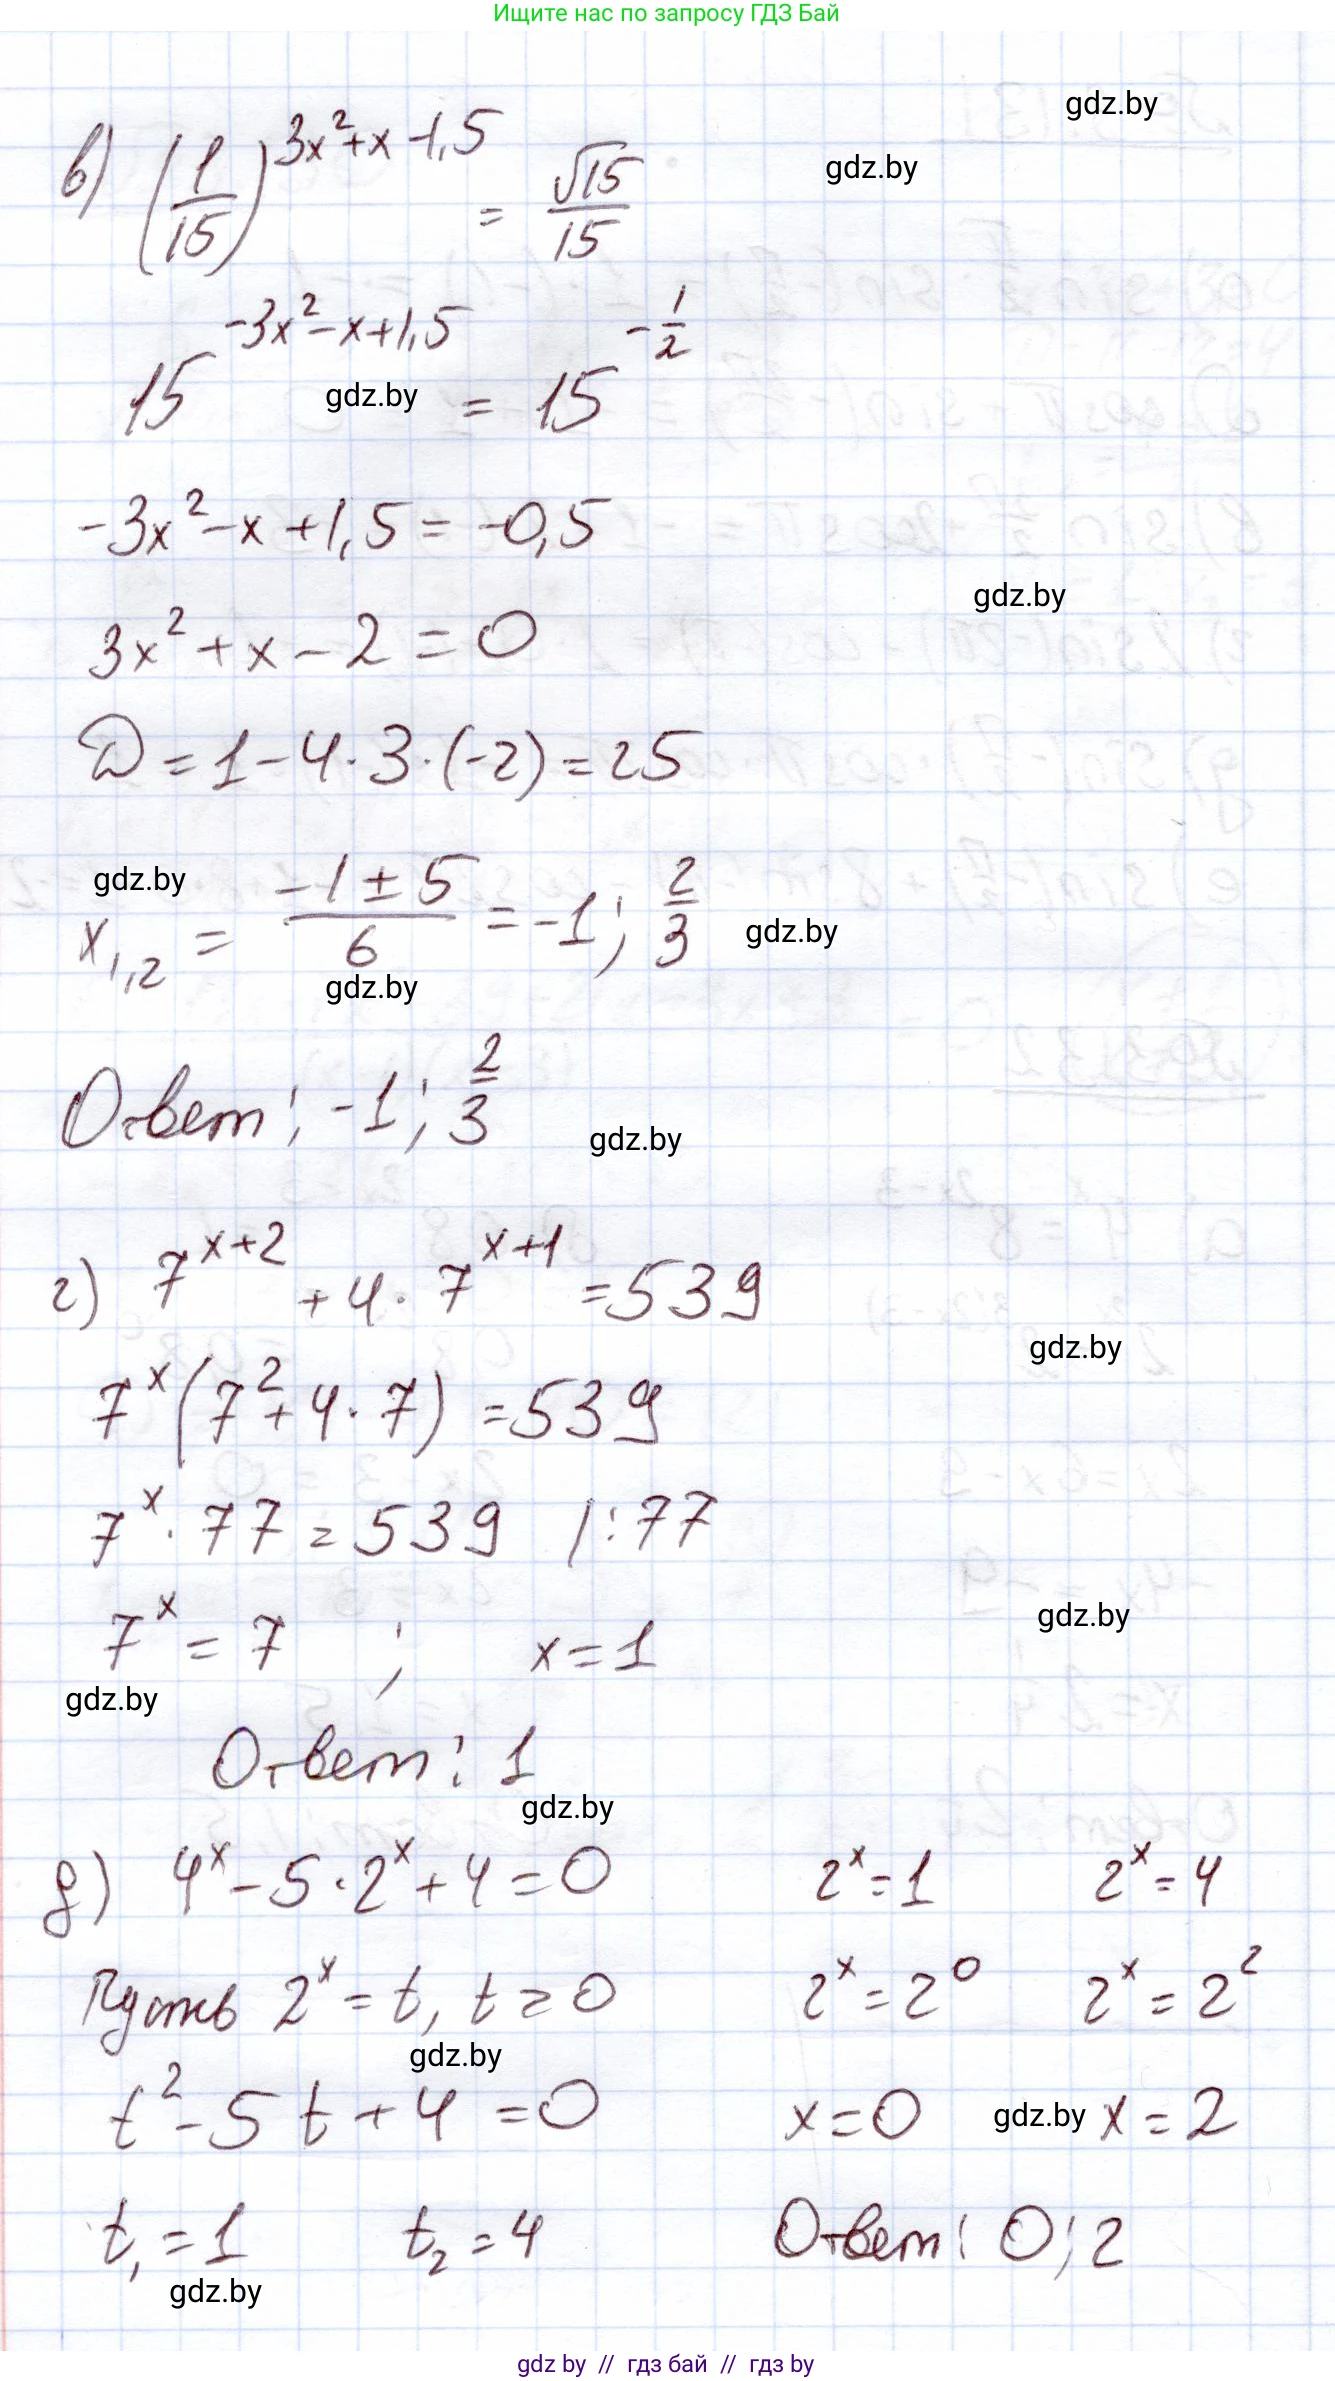 Ищите нас по запросу ГДЗ Бай
gdz.by
gdz.by
в) (1/15)^(3x²+x-1,5) = √15/15
15^(-3x²-x+1,5) = 15^(-1/2)
gdz.by
-3x²-x+1,5 = -0,5
gdz.by
3x²+x-2=0
D=1-4·3·(-2)=25
gdz.by
x₁,₂ = (-1±5)/6 = -1; 2/3
gdz.by
gdz.by
Ответ: -1; 2/3
gdz.by
г) 7^(x+2) + 4·7^(x+1) = 539
gdz.by
7^x(7²+4·7) = 539
7^x·77 = 539 |:77
7^x = 7 ; x=1
gdz.by
gdz.by
Ответ: 1
gdz.by
д) 4^x - 5·2^x + 4 = 0
Пусть 2^x = t, t ≥ 0
gdz.by
t² - 5t + 4 = 0
t₁ = 1 t₂ = 4
gdz.by
2^x = 1 2^x = 4
2^x = 2^0 2^x = 2²
x=0 gdz.by x=2
Ответ: 0; 2
gdz by // гдз бай // гдз by